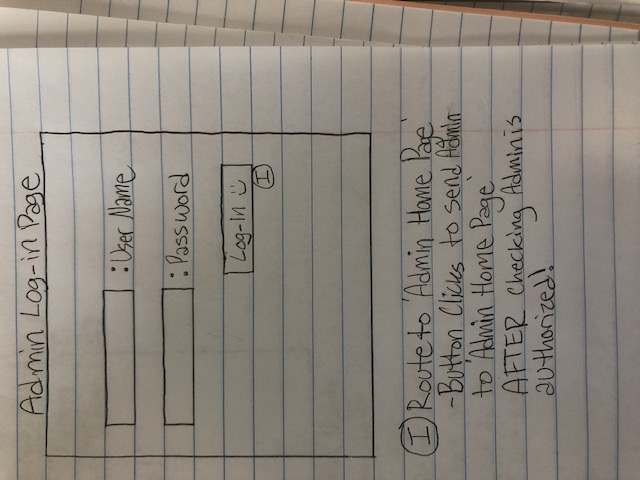 Admin Log-in Page
:User Name
:Password
Log-In :)
I
I Route to 'Admin Home Page'
-Button Clicks to send Admin
to 'Admin Home Page'
AFTER checking Admin is
authorized!